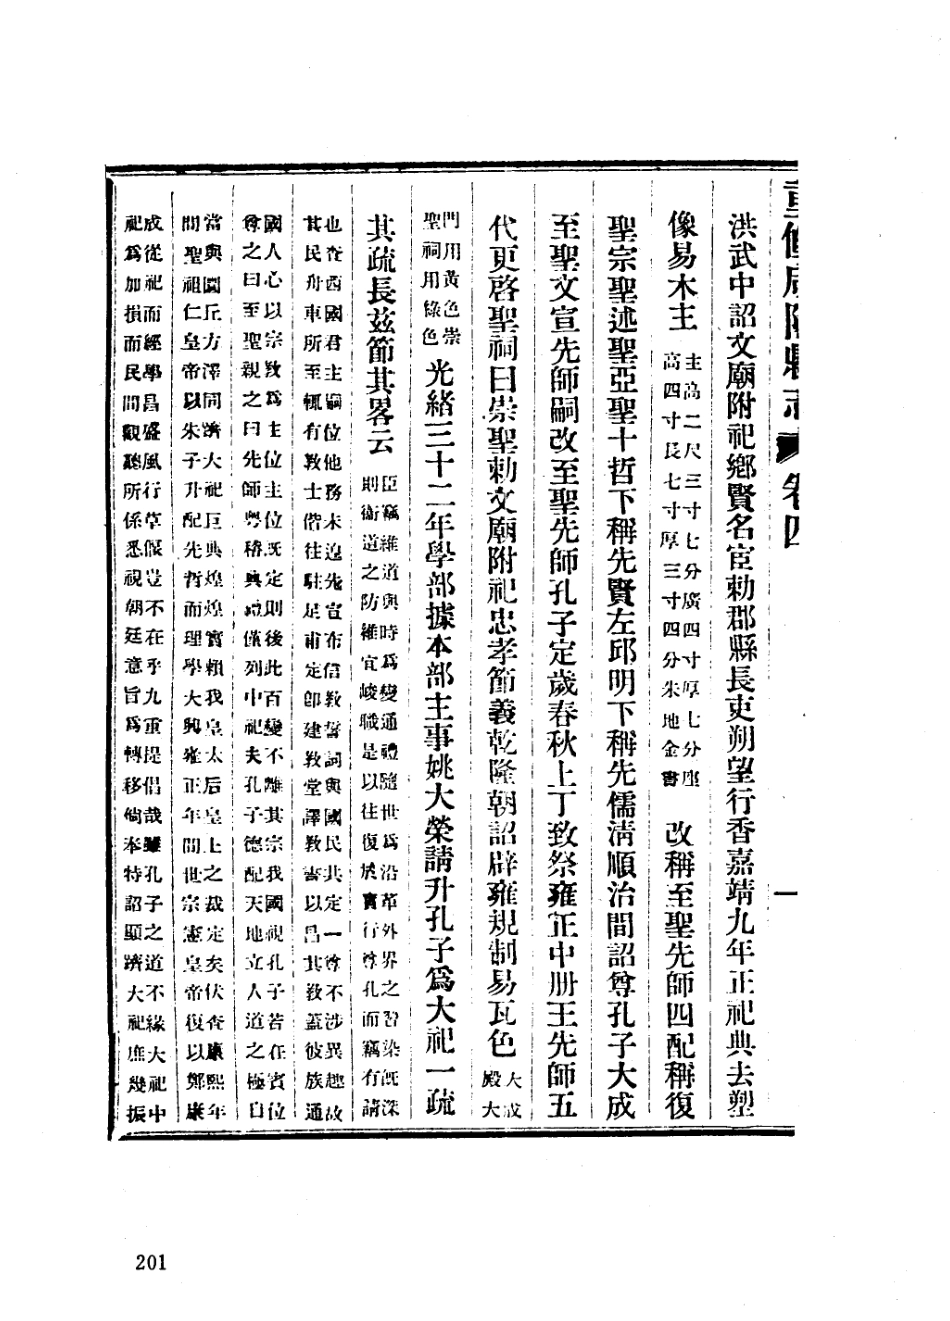 重修咸陽縣志 卷四
一
洪武中詔文廟附祀鄉賢名宦勅郡縣長吏朔望行香嘉靖九年正祀典去塑
像易木主 主高二尺三寸七分廣四寸厚七分座 高四寸長七寸厚三寸四分朱地金書 改稱至聖先師四配稱復
聖宗聖述聖亞聖十哲下稱先賢左邱明下稱先儒清順治間詔尊孔子大成
至聖文宣先師嗣改至聖先師孔子定歲春秋上丁致祭雍正中冊王先師五
代更啓聖祠曰崇聖勅文廟附祀忠孝節義乾隆朝詔辟雍規制易瓦色 大成 殿大
門用黃色崇 聖祠用綠色 光緒三十二年學部據本部主事姚大榮請升孔子爲大祀一疏
其疏長茲節其畧云 臣竊維道與時爲變通禮隨世爲沿革外界之習染既深 則衛道之防維宜峻職是以往復於實行尊孔而竊有請
也查西國君主嗣位他務未遑先宣布信教誓詞與國民共定一尊不涉異趨故
其民舟車所至輒有敎士偕往駐足甫定卽建敎堂譯敎書以昌其敎蓋彼族通
國人心以宗敎爲主位主位旣定則後此百變不離其宗我國視孔子若在賓位
尊之曰至聖親之曰先師粤稽典禮僅列中祀夫孔子德配天地立人道之極自
當與圜丘方澤同躋大祀巨典煌煌實賴我皇太后皇上之裁定矣伏查康熙年
間聖祖仁皇帝以朱子升配先哲而理學大興雍正年間世宗憲皇帝復以鄭康
成從祀而經學昌盛風行草偃豈不在乎九重提倡哉雖孔子之道不緣大祀中
祀爲加損而民間觀聽所係悉視朝廷意旨爲轉移倘奉特詔顯躋大祀庶幾振
201